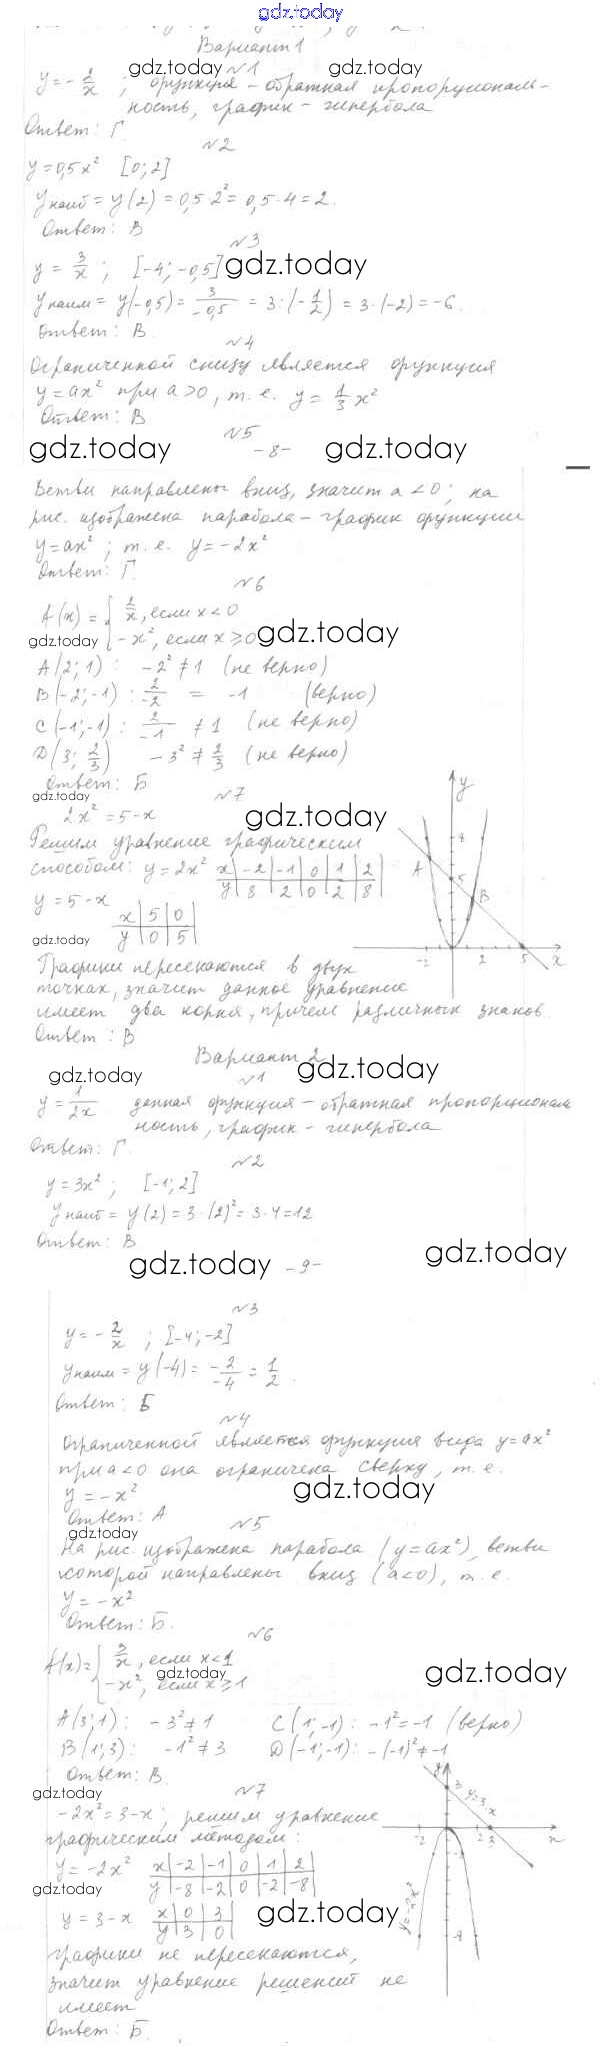 gdz.today
Вариант 1
gdz.today №1 gdz.today
y = -2/x ; функция - обратная пропорциональ-
ность, график - гипербола
Ответ: Г.
№2
y = 0,5x² [0; 2]
yнаиб = y(2) = 0,5·2² = 0,5·4 = 2.
Ответ: В
№3
y = 3/x ; [-4; -0,5] gdz.today
yнаим = y(-0,5) = 3/-0,5 = 3:(-1/2) = 3·(-2) = -6.
Ответ: В.
№4
Ограниченной снизу является функция
y = ax² при a>0, т.е. y = 1/3 x²
Ответ: В
№5
gdz.today -8- gdz.today
Ветви направлены вниз, значит a<0; на
рис. изображена парабола - график функции
y = ax²; т.е. y = -2x²
Ответ: Г.
№6
A(x) = { 2/x, если x<0
gdz.today -x², если x⩾0 gdz.today
A(2; 1): -2² ≠ 1 (не верно)
B(-2; -1): 2/-2 = -1 (верно)
C(-1; -1): 2/-1 ≠ 1 (не верно)
D(3; 2/3) -3² ≠ 2/3 (не верно)
Ответ: Б
gdz.today №7
2x² = 5-x gdz.today
Решим уравнение графическим
способом: y = 2x² x|-2|-1|0|1|2|
y|8|2|0|2|8|
y = 5-x
x|5|0|
gdz.today y|0|5|
y
8
A
5
B
-2 2 5 x
Графики пересекаются в двух
точках, значит данное уравнение
имеет два корня, причем различных знаков.
Ответ: В
Вариант 2
gdz.today №1 gdz.today
y = 1/2x данная функция - обратная пропорциональ
ность, график - гипербола
Ответ: Г.
№2
y = 3x²; [-1; 2]
yнаиб = y(2) = 3·(2)² = 3·4 = 12
Ответ: В
gdz.today -9- gdz.today
№3
y = -2/x ; [-4; -2]
yнаим = y(-4) = -2/-4 = 1/2.
Ответ: Б
№4
Ограниченной является функция вида y = ax²
при a<0 она ограничена сверху, т.е.
y = -x² gdz.today
Ответ: А
gdz.today №5
На рис. изображена парабола (y = ax²), ветви
которой направлены вниз (a<0), т.е.
y = -x²
Ответ: Б.
№6
A(x) = { 3/x, если x<1
gdz.today gdz.today
-x², если x⩾1
A(3; 1): -3² ≠ 1 C(1; -1): -1² = -1 (верно)
B(1; 3): -1² ≠ 3 D(-1; -1): -(-1)² ≠ -1
Ответ: В.
gdz.today №7
-2x² = 3-x; решим уравнение
графическим методом:
y = -2x² x|-2|-1|0|1|2|
gdz.today y|-8|-2|0|-2|-8|
y = 3-x x|0|3| gdz.today
y|3|0|
y
3 y=3-x
-2 2 3 x
y=-2x²
-8
графики не пересекаются,
значит уравнение решений не
имеет
Ответ: Б.